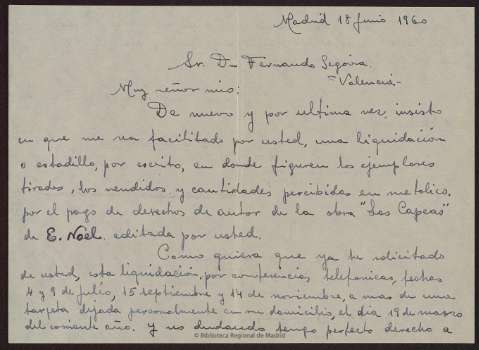 Madrid 18 junio 1960
Sr. D. Fernando Segovia.
Valencia-
Muy señor mio:
De nuevo y por ultima vez, insisto
en que me sea facilitado por usted, una liquidación
o estadillo, por escrito, en donde figuren los ejemplares
tirados, los vendidos y cantidades percibidas en metalico,
por el pago de derechos de autor de la obra "Las Capeas"
de E. Noël editada por usted.
Como quiera que ya he solicitado
de usted, esta liquidación, por conferencias telefonicas, fechas
4 y 9 de julio, 15 septiembre y 14 de noviembre, a mas de una
tarjeta dejada personalmente en su domicilio, el dia 19 de marzo
del corriente año. Y no dudando tengo perfecto derecho a
Biblioteca Regional de Madrid